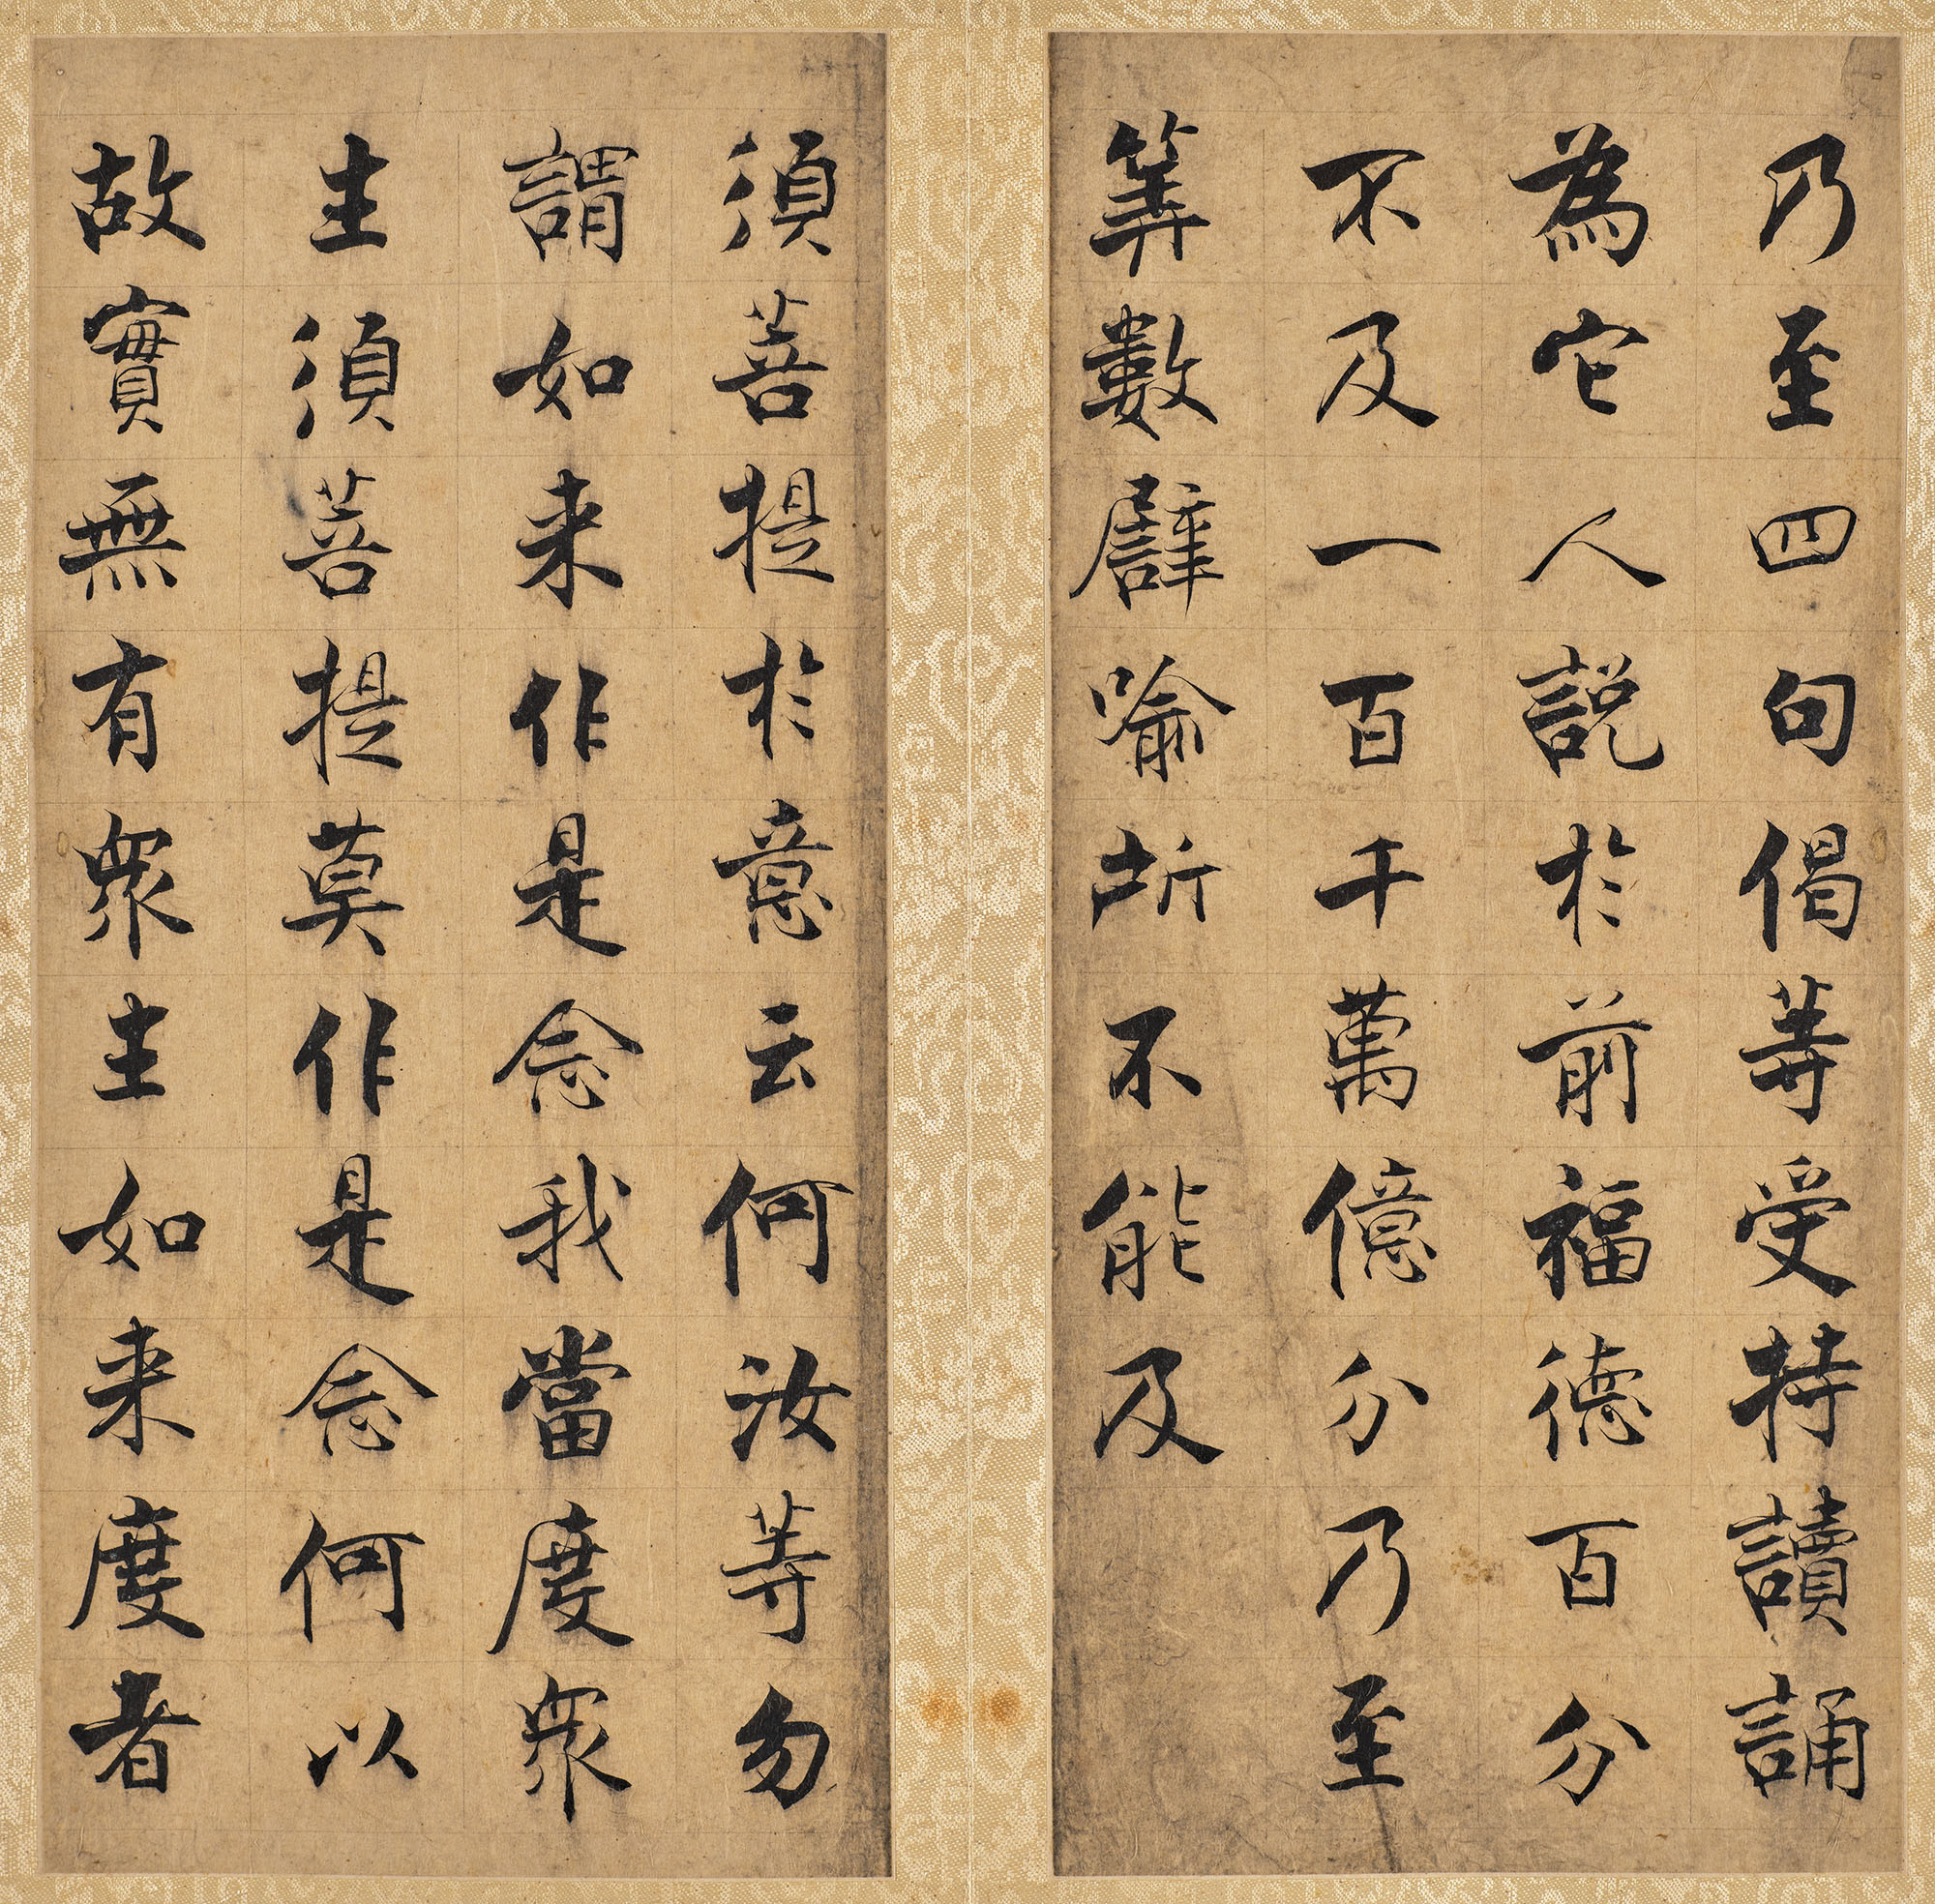 乃至四句偈等受持讀誦
為它人說於前福德百分
不及一百千萬億分乃至
筭數譬喻所不能及
須菩提於意云何汝等勿
謂如来作是念我當度衆
生須菩提莫作是念何以
故實無有衆生如来度者